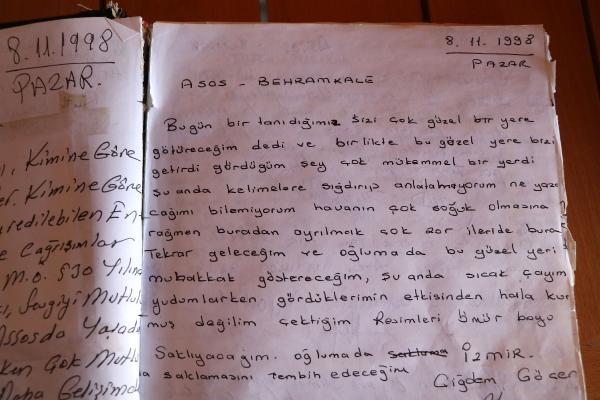 8.11.1998
PAZAR.
Kimine Göre
Kimine Göre
edilebilen En
Çağrışımlar
M.Ö. 530 Yılına
Sevgiyi Mutlul
Assosda Yaşadı
Çok Mutlu
Daha Gelişimd
8.11.1998
PAZAR
ASOS - BEHRAMKALE
Bugün bir tanıdığımız sizi çok güzel bir yere
götüreceğim dedi ve birlikte bu güzel yere bizi
getirdi gördüğüm şey çok mükemmel bir yerdi
şu anda kelimelere sığdırıp anlatamıyorum ne yaza
cağımı bilemiyorum havanın çok soğuk olmasına
rağmen buradan ayrılmak çok zor ileride bura
Tekrar geleceğim ve oğlumada bu güzel yeri
muhakkak göstereceğim, şu anda sıcak çayım
yudumlarken gördüklerimin etkisinden hala kur
muş değilim çektiğim Resimleri ömür boyu
Saklıyacağım. oğlumada İzmir.
saklamasını tembih edeceğim
Çiğdem Göçer